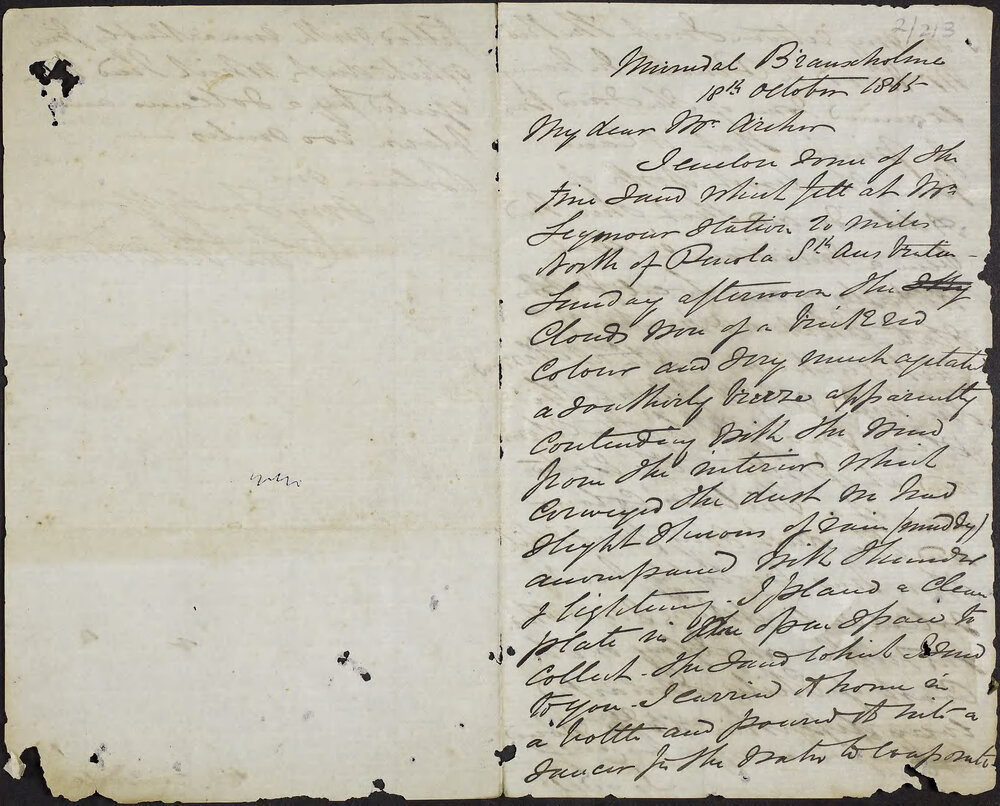 2/213
Muredal Branxholme
18th October 1865
My dear Mr Archer
I enclose some of the
fine sand which fell at Mr
Seymour Station 20 miles
North of Penola Sth Australia -
Sunday afternoon the
Clouds were of a brick red
Colour and very much agitated
a southerly breeze apparently
Contending with the wind
from the interior which
Conveyed the dust we had
slight showers of rain (muddy)
accompanied with thunder
& lightning - I placed a clean
plate in the open space to
Collect the sand which I send
to you - I carried it home in
a bottle and poured it into a
saucer for the water to evaporate